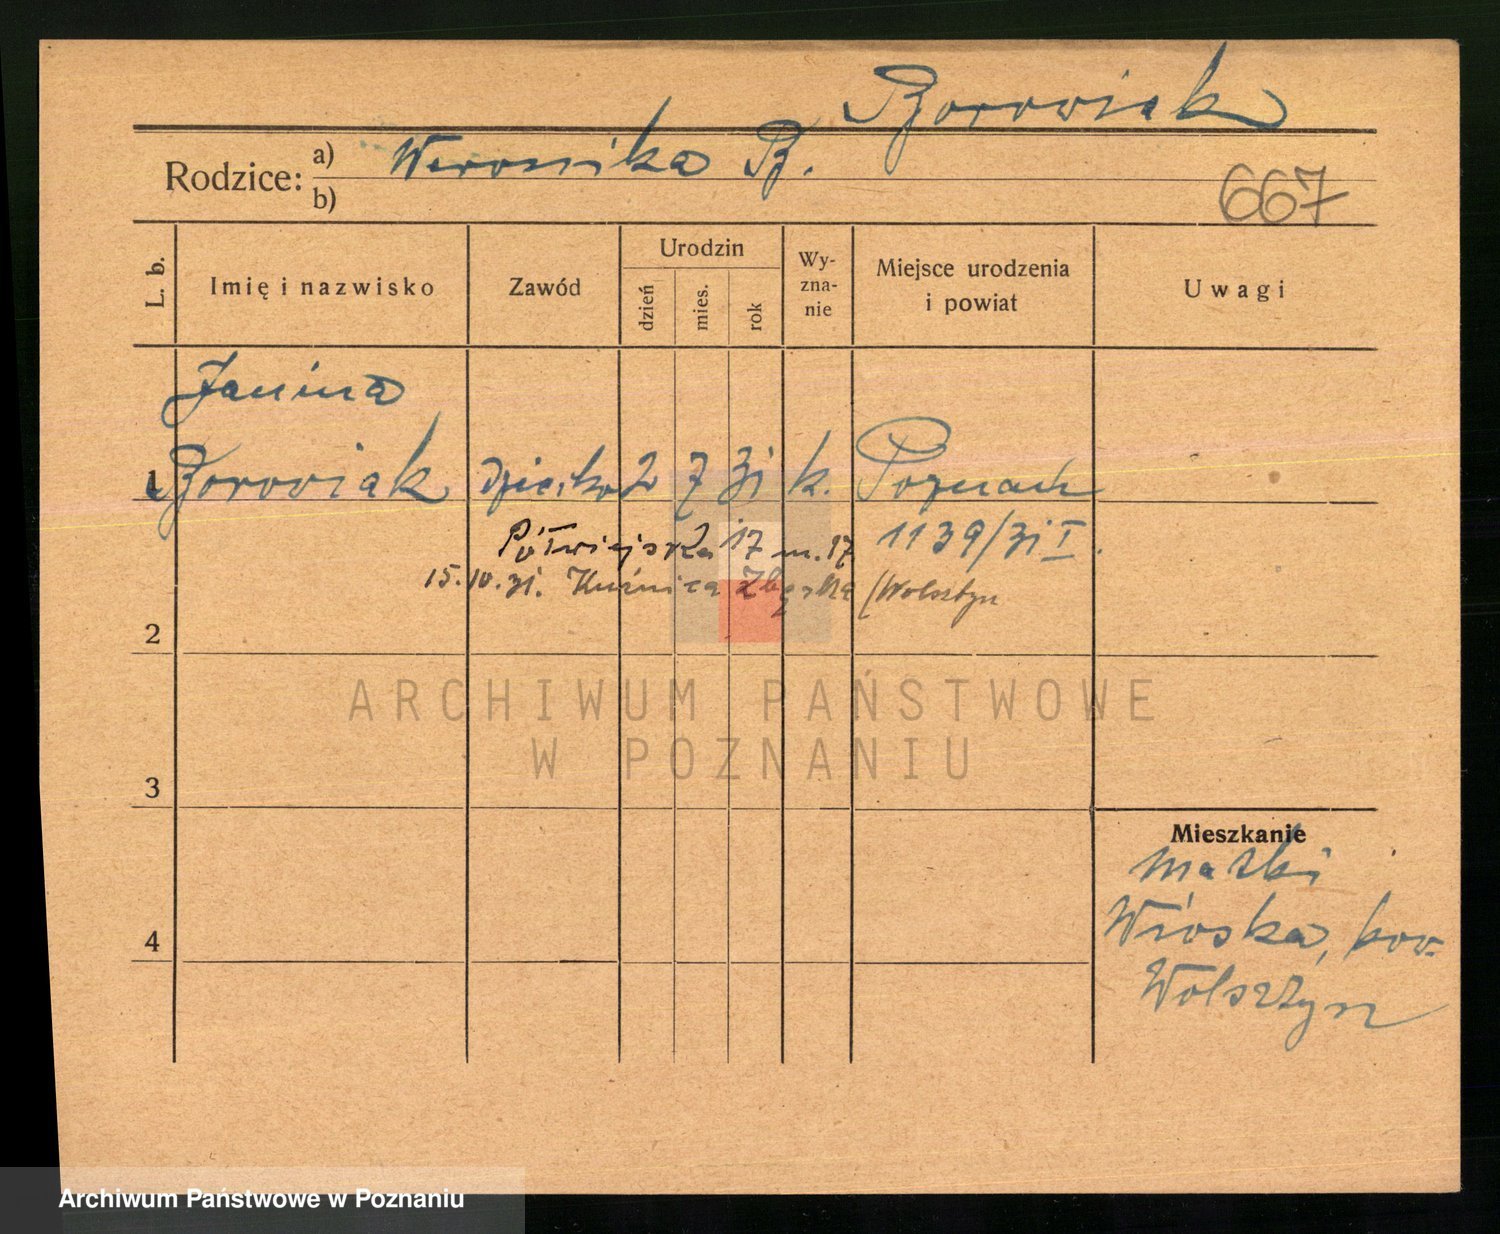 Borowiak
Rodzice: a) Weronika B.
b)
667
L. b.
Imię i nazwisko
Zawód
Urodzin
dzień
mies.
rok
Wy-
zna-
nie
Miejsce urodzenia
i powiat
Uwagi
Janina
1 Borowiak dziecko 2 7 31 k. Poznań
Półwiejska 17 m. 17 1139/31 I.
15.10.31. Kuźnica Zbąska (Wolsztyn
2
ARCHIWUM PAŃSTWOWE
W POZNANIU
3
Mieszkanie
matki
4
Wioska, pow.
Wolsztyn
Archiwum Państwowe w Poznaniu